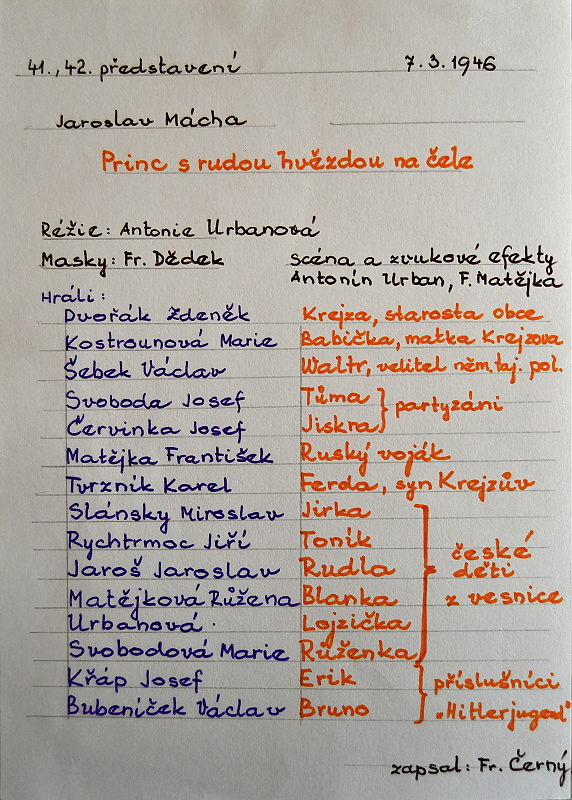 41., 42. představení 7. 3. 1946
Jaroslav Mácha
Princ s rudou hvězdou na čele
Réžie: Antonie Urbanová
Masky: Fr. Dědek scéna a zvukové efekty
Antonín Urban, F. Matějka
Hráli:
Dvořák Zdeněk Krejza, starosta obce
Kostrounová Marie Babička, matka Krejzova
Šebek Václav Waltr, velitel něm. taj. pol.
Svoboda Josef Tůma
Červinka Josef Jiskra partyzáni
Matějka František Ruský voják
Tvrzník Karel Ferda, syn Krejzův
Slánsky Miroslav Jirka
Rychtrmoc Jiří Toník
Jaroš Jaroslav Rudla
Matějková Růžena Blanka
Urbanová Lojzička
Svobodová Marie Růženka
české
děti
z vesnice
Křáp Josef Erik
Bubeníček Václav Bruno
příslušníci
„Hitlerjugend"
zapsal: Fr. Černý